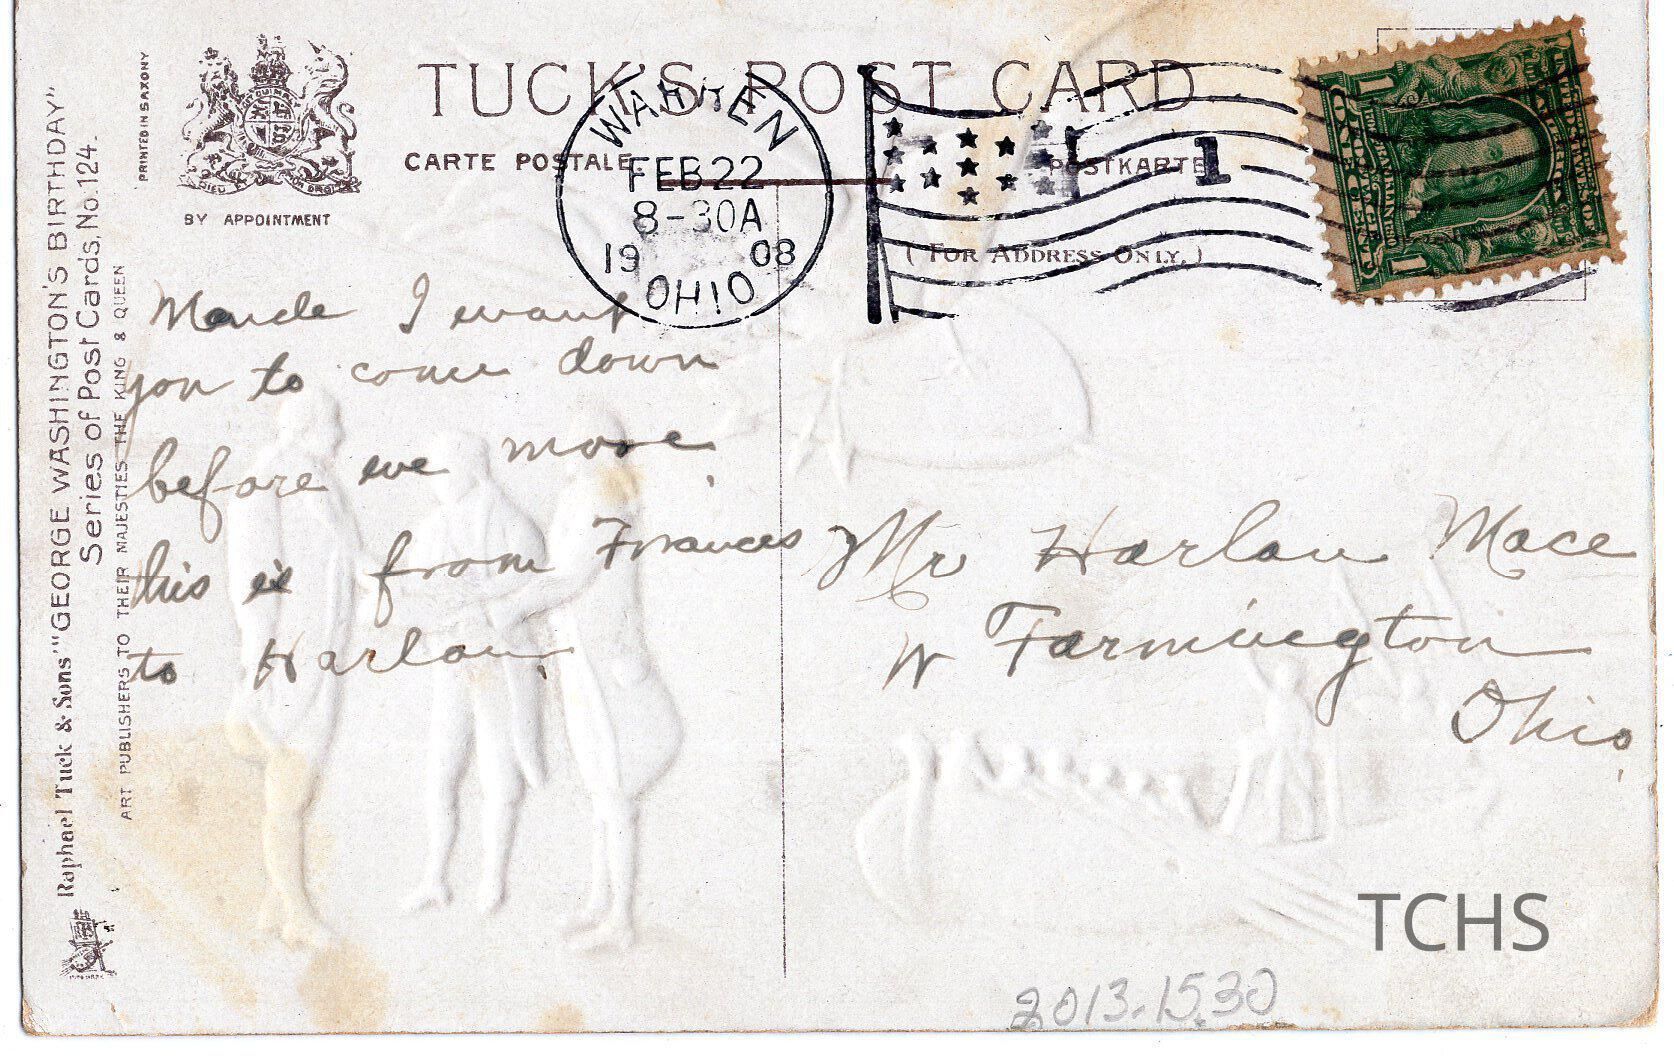 TUCK'S POST CARD
CARTE POSTALE.
POSTKARTE
(FOR ADDRESS ONLY.)
BY APPOINTMENT
PRINTED IN SAXONY
Raphael Tuck & Sons' "GEORGE WASHINGTON'S BIRTHDAY"
Series of Post Cards, No. 124.
ART PUBLISHERS TO THEIR MAJESTIES THE KING & QUEEN
FEB 22
8-30A
1908
OHIO
1
Maude I want
you to come down
before we move
this is from Frances
to Harlan.
Mr Harlan Mace
W Farmington
Ohio
TCHS
2013.15.30